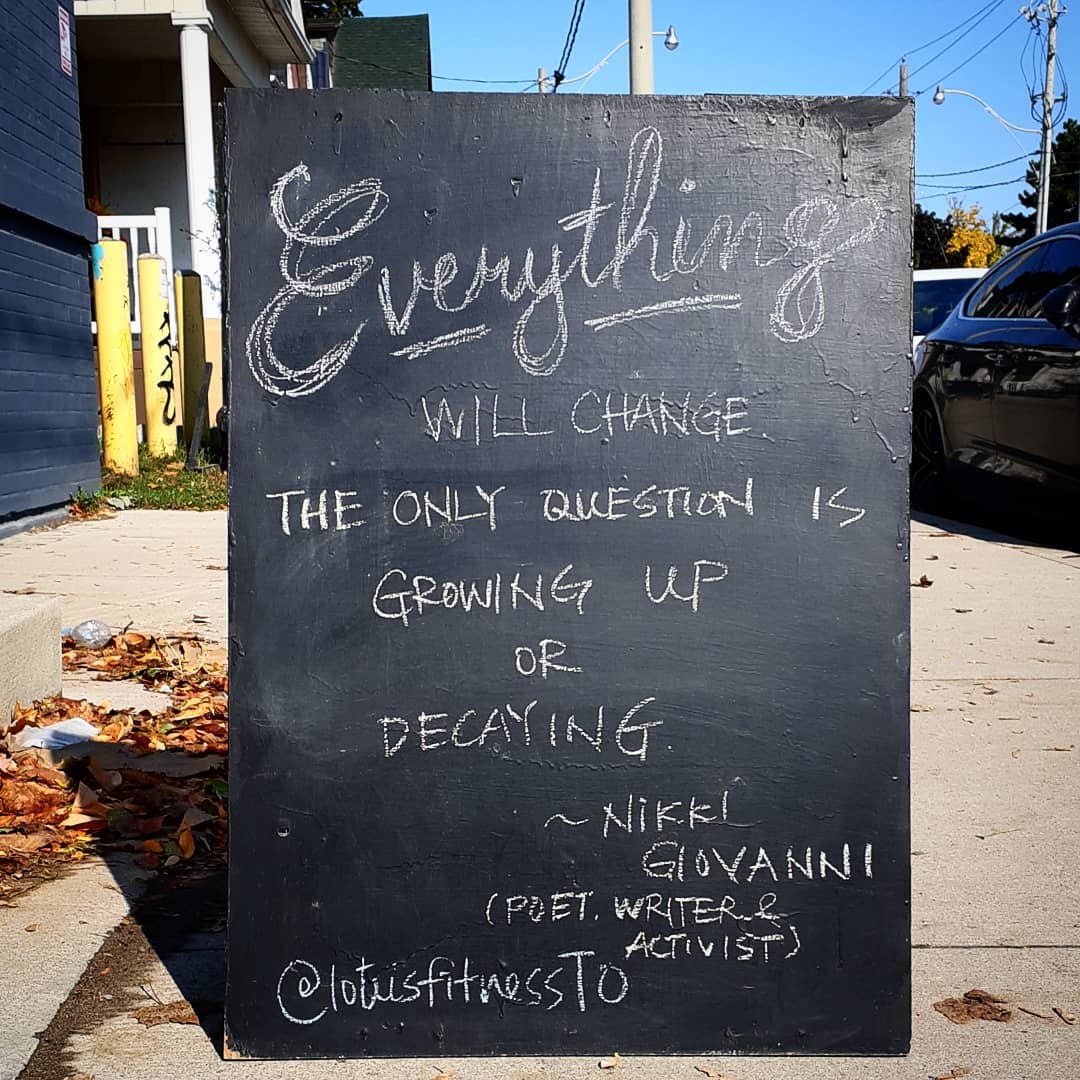 Everything
WILL CHANGE.
THE ONLY QUESTION IS
GROWING UP
OR
DECAYING.
~ NIKKI
GIOVANNI
(POET. WRITER &
ACTIVIST)
@lotusfitnessTO